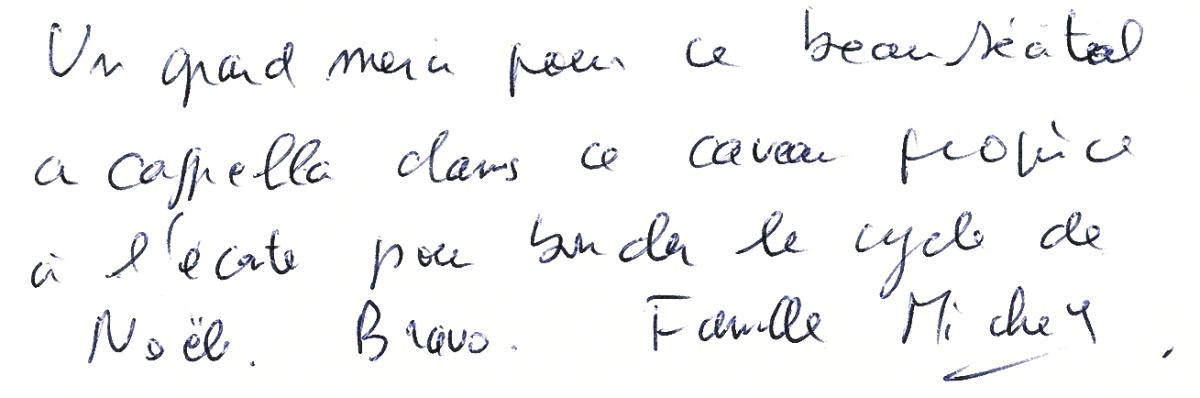 Un grand merci pour ce beau récital
a cappella dans ce caveau propice
à l'écoute pour boucler le cycle de
Noël. Bravo. Famille